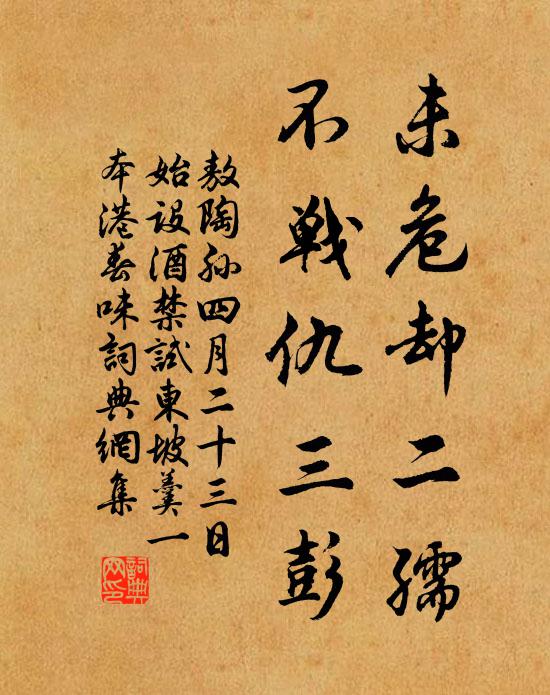 未危却二孺
不戦仇三彭
敖陶孙四月二十三日
始設酒禁試東坡羹一
本港春味詞典網集
詞典
网印